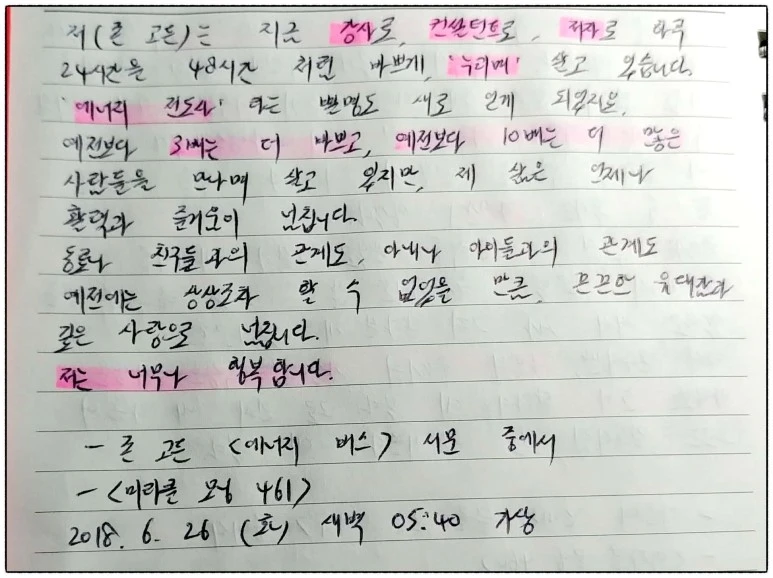 저(존 고든)는 지금 강사로, 컨설턴트로, 저자로 하루
24시간을 48시간 처럼 바쁘게, '누리며' 살고 있습니다.
'에너지 전도사' 라는 별명도 새로 얻게 되었지요.
예전보다 3배는 더 바쁘고, 예전보다 10배는 더 많은
사람들을 만나며 살고 있지만, 제 삶은 언제나
활력과 즐거움이 넘칩니다.
동료나 친구들과의 관계도, 아내나 아이들과의 관계도
예전에는 상상조차 할 수 없었을 만큼, 끈끈한 유대감과
깊은 사랑으로 넘칩니다.
저는 너무나 행복합니다.
- 존 고든 <에너지 버스> 서문 중에서
- <미라클 모닝 461>
2018. 6. 26 (화) 새벽 05:40 기상